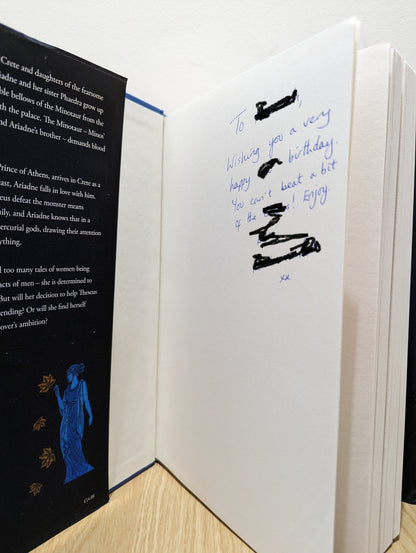 Crete and daughters of the fearsome
iadne and her sister Phaedra grow up
ble bellows of the Minotaur from the
th the palace. The Minotaur – Minos'
nd Ariadne's brother – demands blood
Prince of Athens, arrives in Crete as a
ast, Ariadne falls in love with him.
eus defeat the monster means
ily, and Ariadne knows that in a
ercurial gods, drawing their attention
ything.
l too many tales of women being
acts of men – she is determined to
But will her decision to help Theseus
ending? Or will she find herself
over's ambition?
£14.99
To
Wishing you a very
happy birthday.
You can't beat a bit
of the ! Enjoy
xx